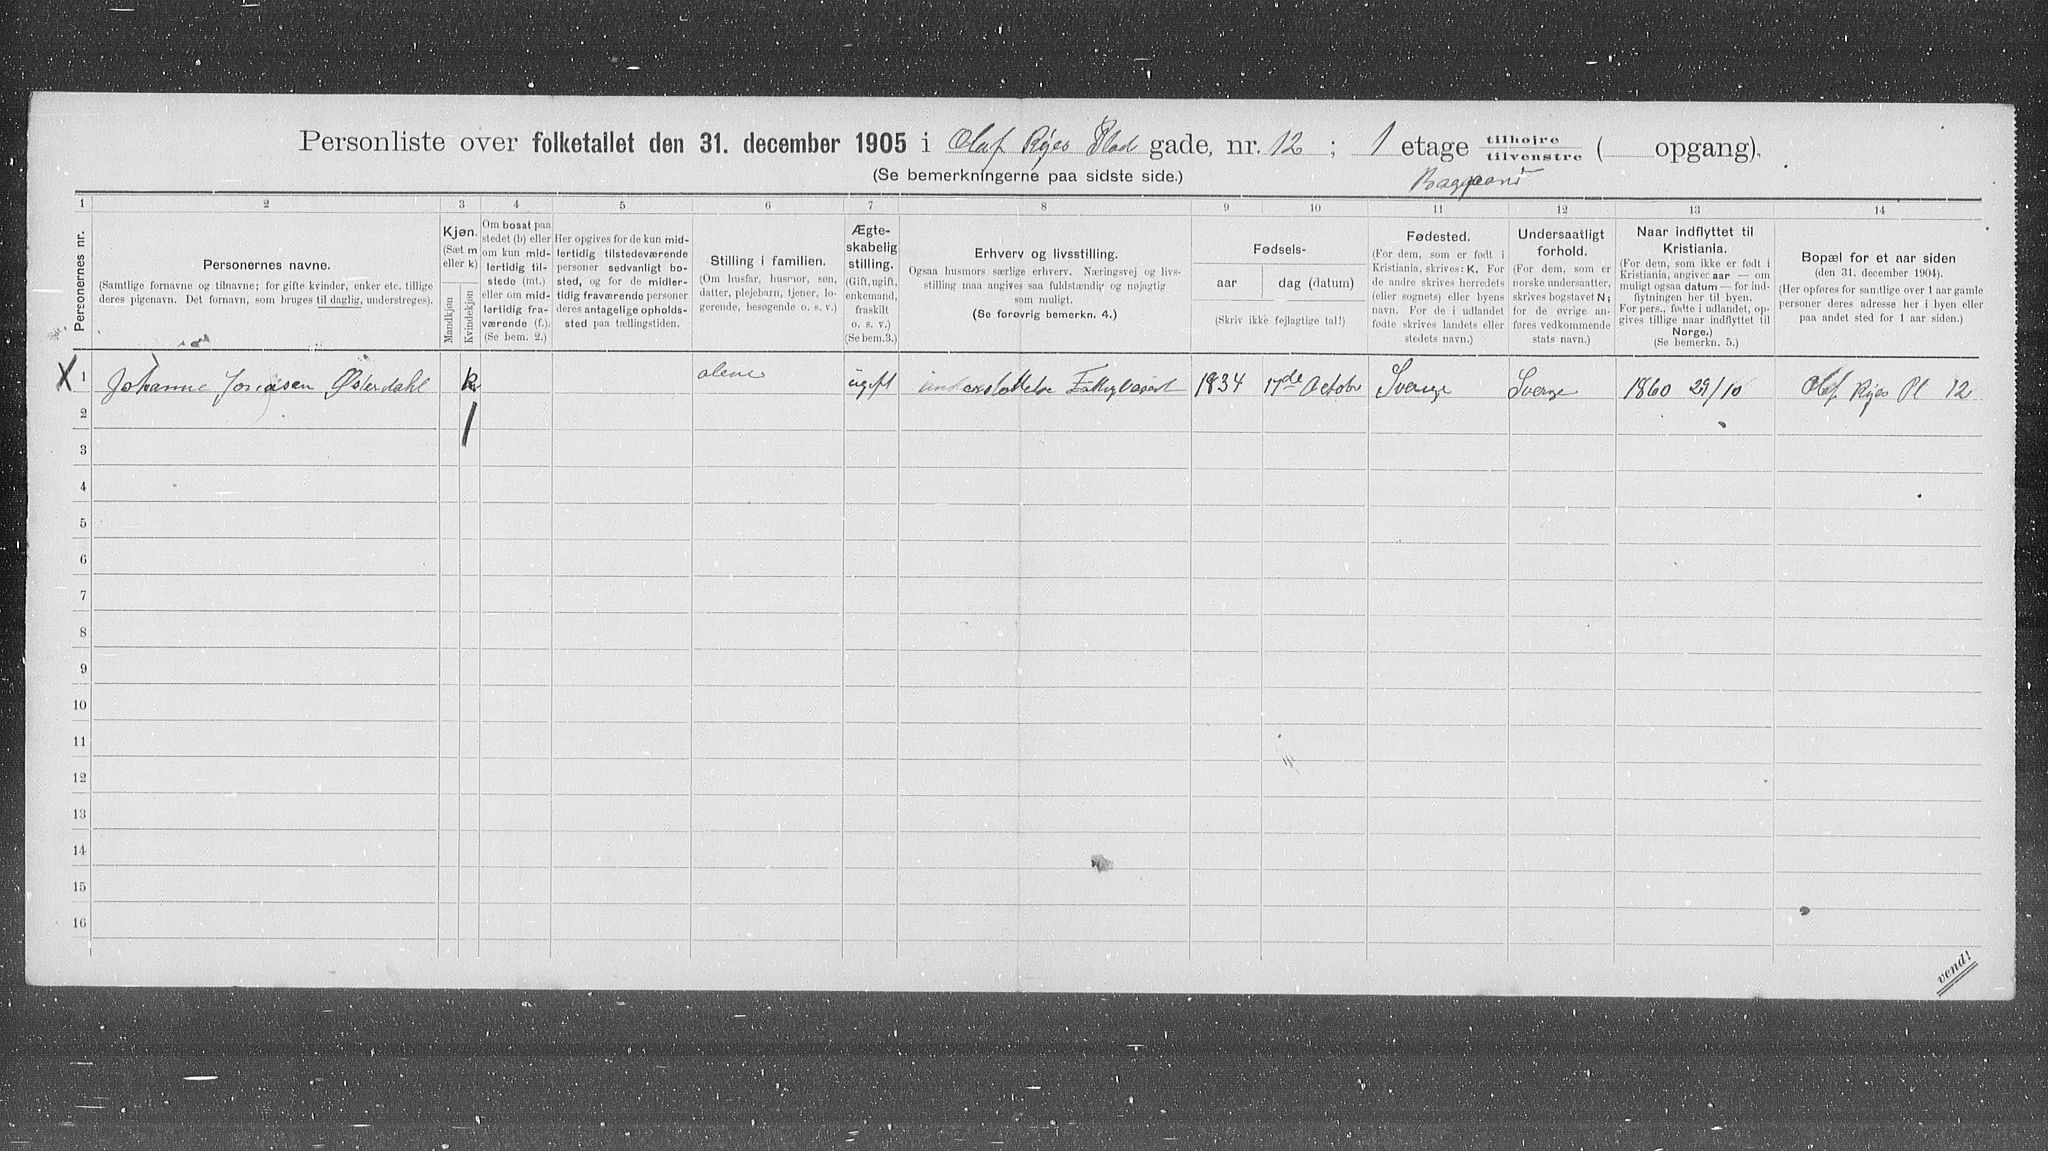 Personliste over folketallet den 31. december 1905 i Olaf Ryes Plads gade, nr. 12 ; 1 etage tilhøjre tilvenstre ( opgang).
(Se bemerkningerne paa sidste side.)
1 2 3 4 5 6 7 8 9 10 11 12 13 14
Personernes nr.
Personernes navne.
(Samtlige fornavne og tilnavne; for gifte kvinder, enker etc. tillige
deres pigenavn. Det fornavn, som bruges til daglig, understreges).
Kjøn.
(Sæt m
eller k)
Mandkjøn
Kvindekjøn
Om bosat paa
stedet (b) eller
om kun mid-
lertidig til-
stede (mt.)
eller om mid-
lertidig fra-
værende (f.).
(Se bem. 2.)
Her opgives for de kun mid-
lertidig tilstedeværende
personer sedvanligt bo-
sted, og for de midler-
tidig fraværende personer
deres antagelige opholds-
sted paa tællingstiden.
Stilling i familien.
(Om husfar, husmor, søn,
datter, plejebarn, tjener, lo-
gerende, besøgende o. s. v.)
Ægte-
skabelig
stilling.
(Gift, ugift,
enkemand,
fraskilt
o. s. v.)
(Se bem.3.)
Erhverv og livsstilling.
Ogsaa husmors særlige erhverv. Næringsvej og livs-
stilling maa angives saa fuldstændig og nøjagtig
som muligt.
(Se forøvrig bemerkn. 4.)
Fødsels-
aar
dag (datum)
(Skriv ikke fejlagtige tal!)
Fødested.
(For dem, som er født i
Kristiania, skrives: K. For
de andre skrives herredets
(eller sognets) eller byens
navn. For de i udlandet
fødte skrives landets eller
stedets navn.)
Undersaatligt
forhold.
(For dem, som er
norske undersaatter,
skrives bogstavet N;
for de øvrige an-
føres vedkommende
stats navn.)
Naar indflyttet til
Kristiania.
(For dem, som ikke er født i
Kristiania, angiver aar — om
muligt ogsaa datum — for ind-
flytningen her til byen.
For pers., fødte i udlandet, op-
gives tillige naar indflyttet til
Norge.)
(Se bemerkn. 5.)
Bopæl for et aar siden
(den 31. december 1904).
(Her opføres for samtlige over 1 aar gamle
personer deres adresse her i byen eller
paa andet sted for 1 aar siden.)
X 1 Johanne Østerdahl k alene ugift Fattigvæsen 1834 17de October Sverige Sverge 1860 29/10 Olaf Ryes Pl 12
2
3
4
5
6
7
8
9
10
11
12
13
14
15
16
vend!